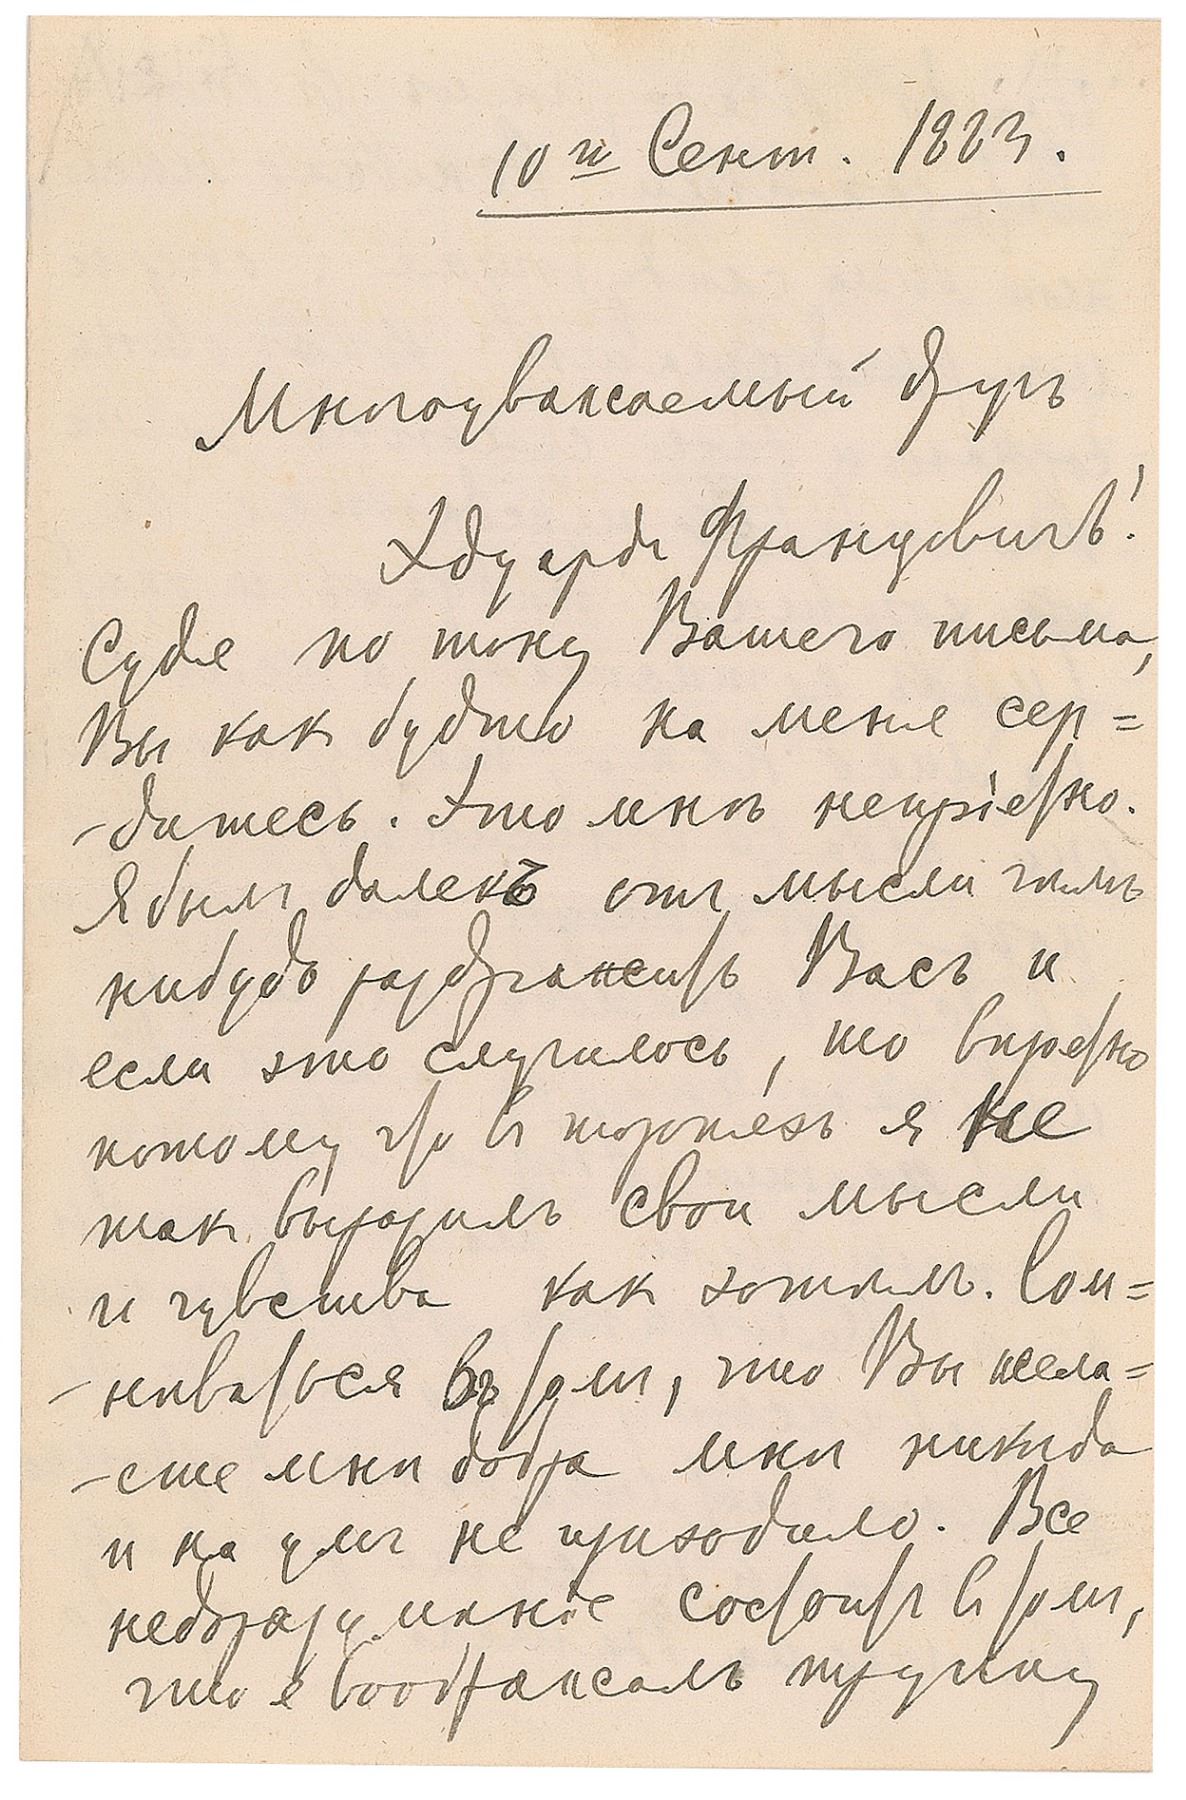 10го Сент. 1883.
Многоуважаемый другъ
Эдуардъ Францовичъ!
Судя по тону Вашего письма,
Вы какъ будто на меня сер=
-дитесь. Это мнѣ непріятно.
Я былъ далекъ отъ мысли чѣмъ
нибудь раздражить Васъ и
если это случилось, то вѣрятно
потому что въ торопяхъ я не
такъ выразилъ свои мысли
и чувства какъ хотѣлъ. Сом=
-нѣваться въ томъ, что Вы жела=
-ете мнѣ добра мнѣ никогда
и на умъ не приходило. Все
недоразуманіе состоитъ въ томъ,
что я воображалъ труппу